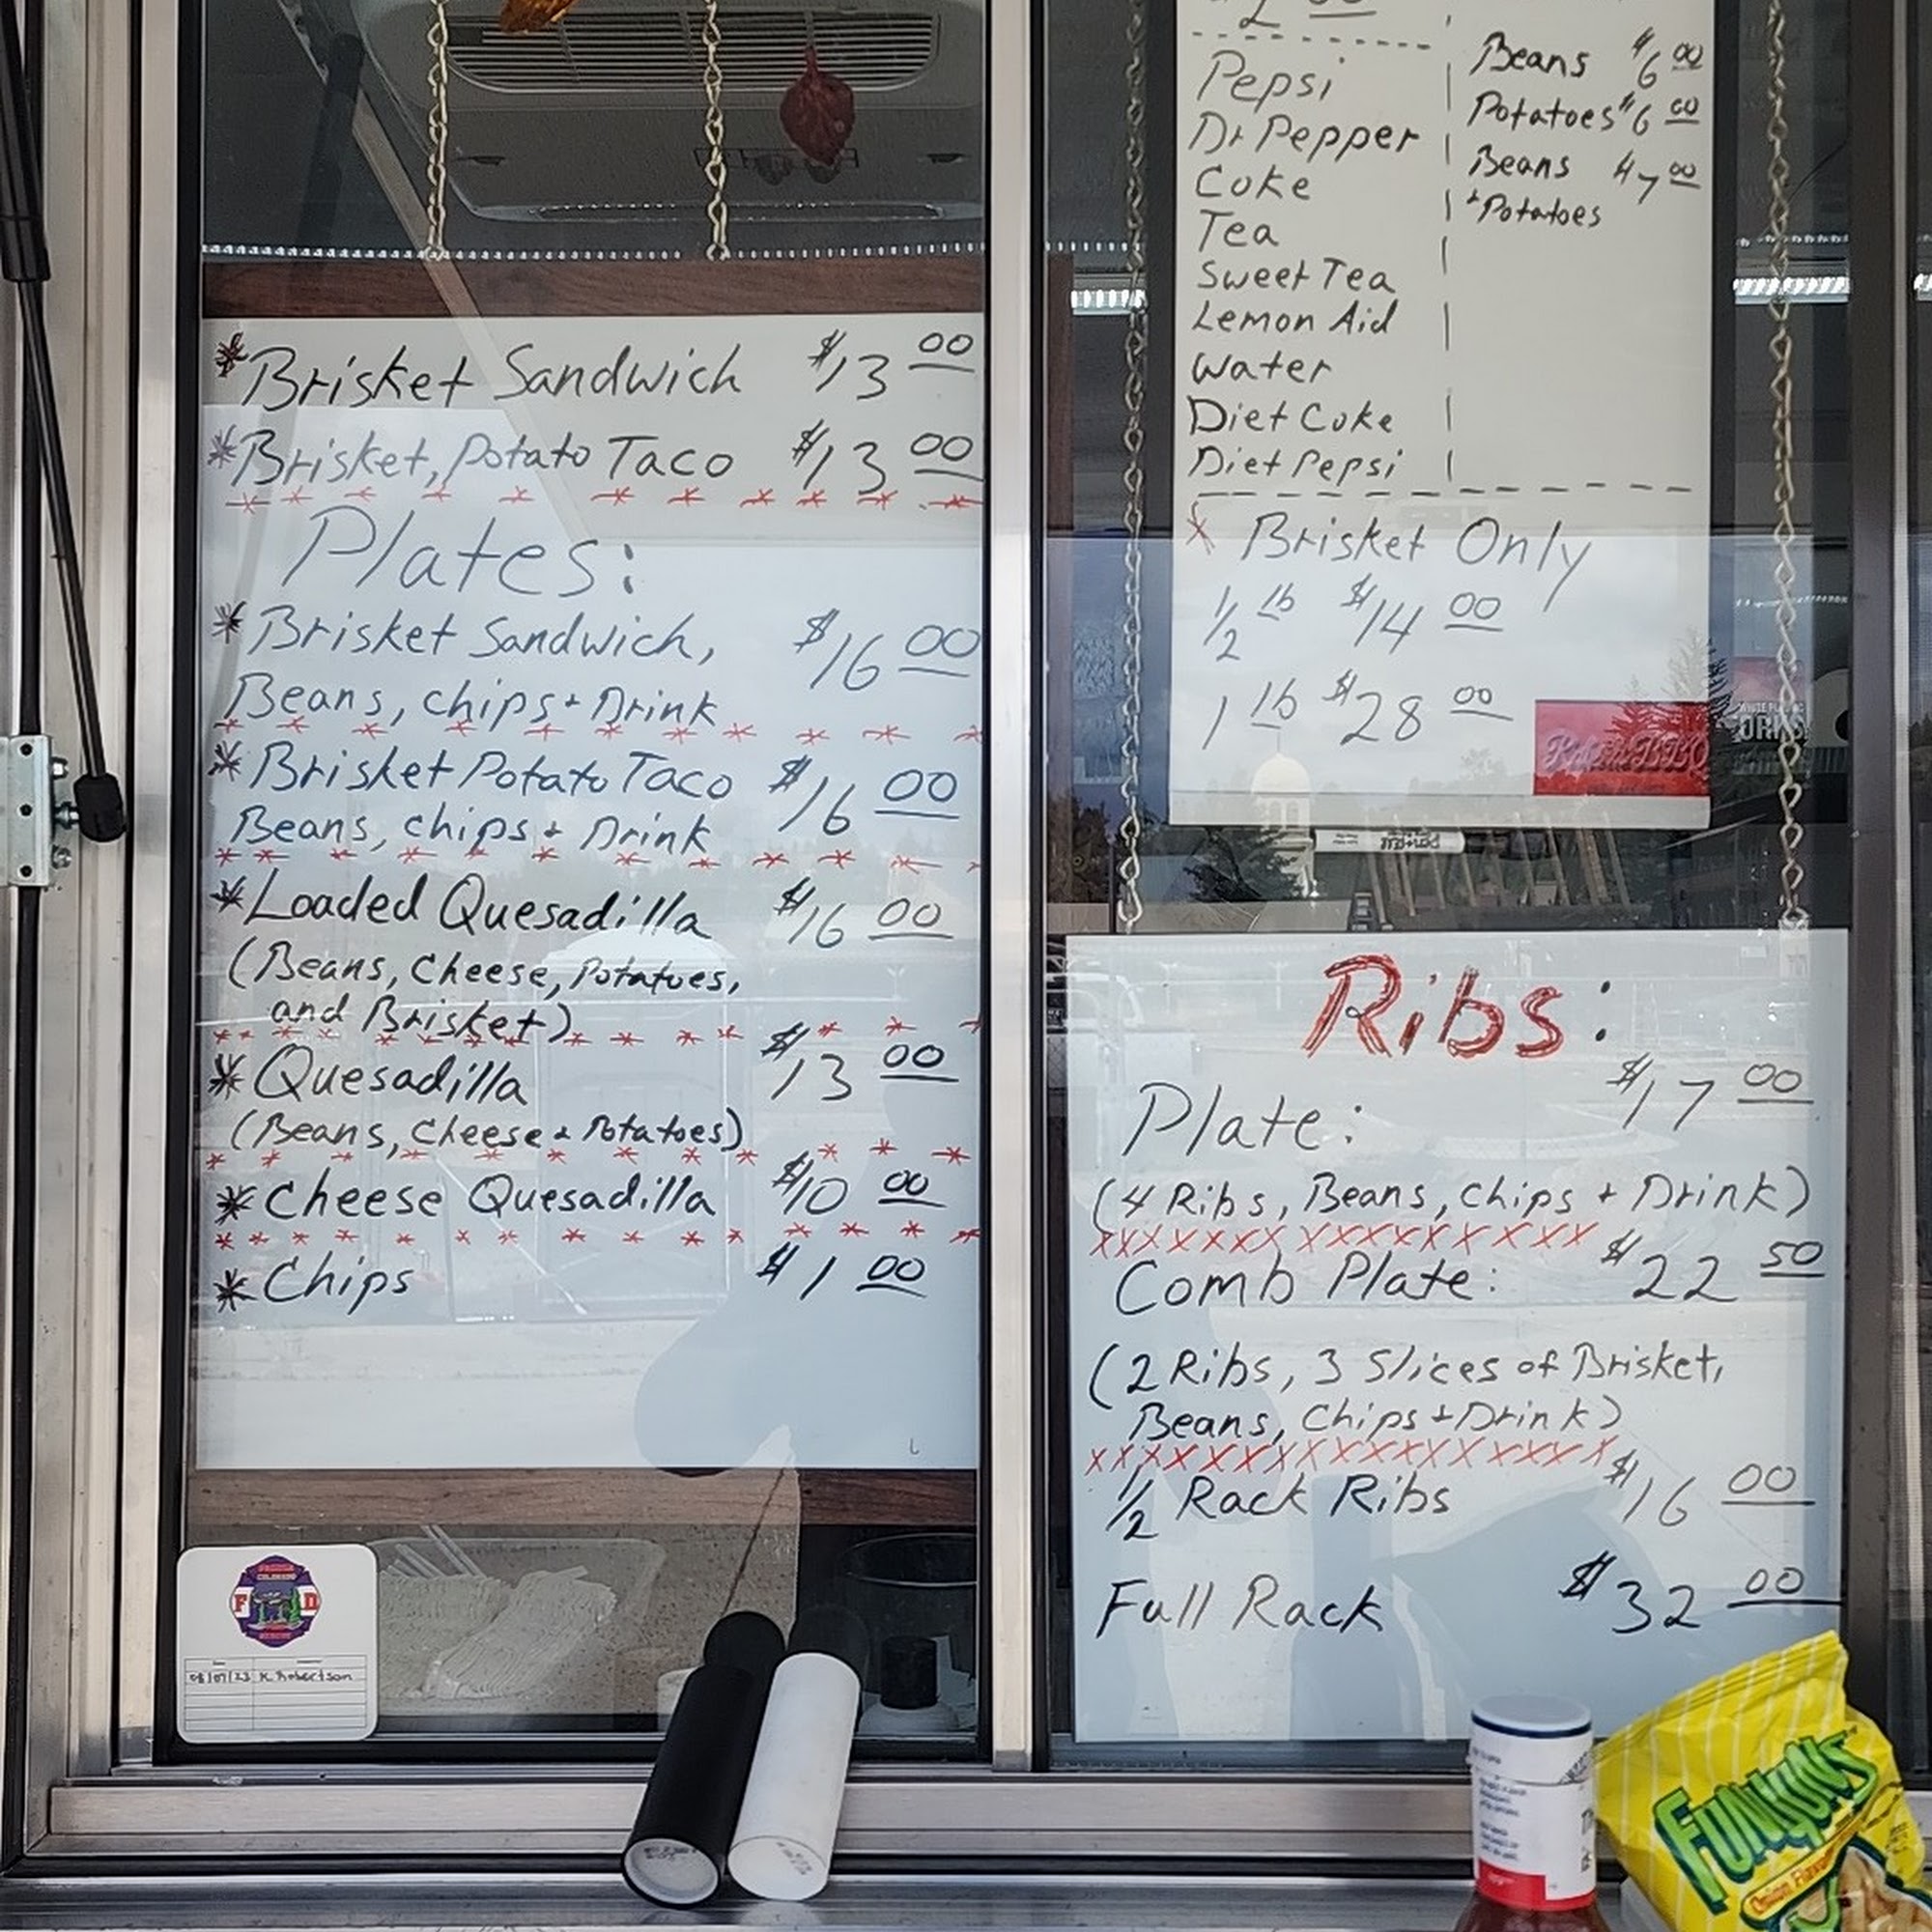 * Brisket Sandwich $13 00
* Brisket, Potato Taco $13 00
Plates:
* Brisket Sandwich, $16 00
Beans, Chips + Drink
* Brisket Potato Taco $16 00
Beans, Chips + Drink
* Loaded Quesadilla $16 00
(Beans, Cheese, Potatoes,
and Brisket)
* Quesadilla $13 00
(Beans, Cheese + Potatoes)
* Cheese Quesadilla $10 00
* Chips $1 00
Pepsi
Dr Pepper
Coke
Tea
Sweet Tea
Lemon Aid
Water
Diet Coke
Diet Pepsi
Beans $6 00
Potatoes $6 00
Beans $7 00
+ Potatoes
* Brisket Only
1/2 lb $14 00
1 lb $28 00
Ribs:
Plate: $17 00
(4 Ribs, Beans, Chips + Drink)
XXXXXXX XXXXXXXXX
Comb Plate: $22 50
(2 Ribs, 3 Slices of Brisket,
Beans, Chips + Drink)
XXXXXXXXXXXXXXXXX
1/2 Rack Ribs $16 00
Full Rack $32 00
COLORADO
F D
K. Robertson
FUNYUNS
Onion Flavored